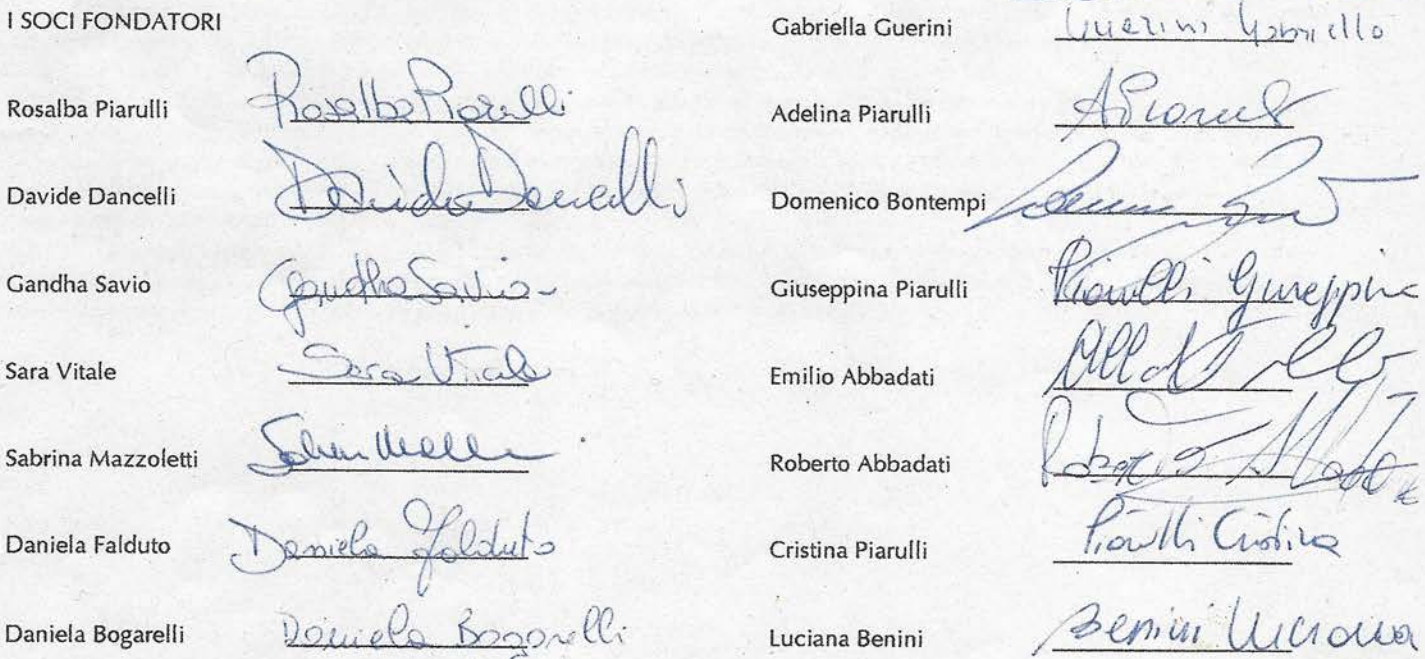 I SOCI FONDATORI
Rosalba Piarulli Rosalba Piarulli
Davide Dancelli Davide Dancelli
Gandha Savio Gandha Savio
Sara Vitale Sara Vitale
Sabrina Mazzoletti
Daniela Falduto Daniela Falduto
Daniela Bogarelli Daniela Bogarelli
Gabriella Guerini Guerini Gabriella
Adelina Piarulli
Domenico Bontempi
Giuseppina Piarulli Piarulli Giuseppina
Emilio Abbadati
Roberto Abbadati
Cristina Piarulli Piarulli Cristina
Luciana Benini Benini Luciana